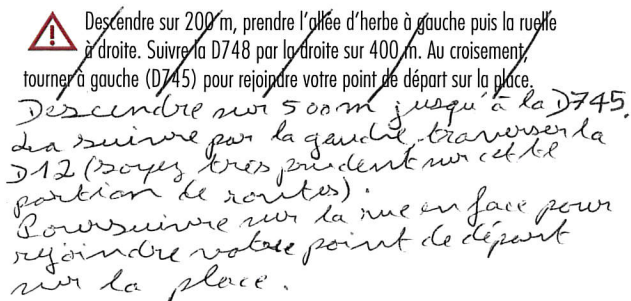 Descendre sur 200 m, prendre l'allée d'herbe à gauche puis la ruelle
à droite. Suivre la D748 par la droite sur 400 m. Au croisement,
tourner à gauche (D745) pour rejoindre votre point de départ sur la place.
Descendre sur 500m jusqu'à la D745.
La suivre par la gauche, traverser la
D12 (soyez très prudent sur cette
portion de routes).
Poursuivre sur la rue en face pour
rejoindre votre point de départ
sur la place.